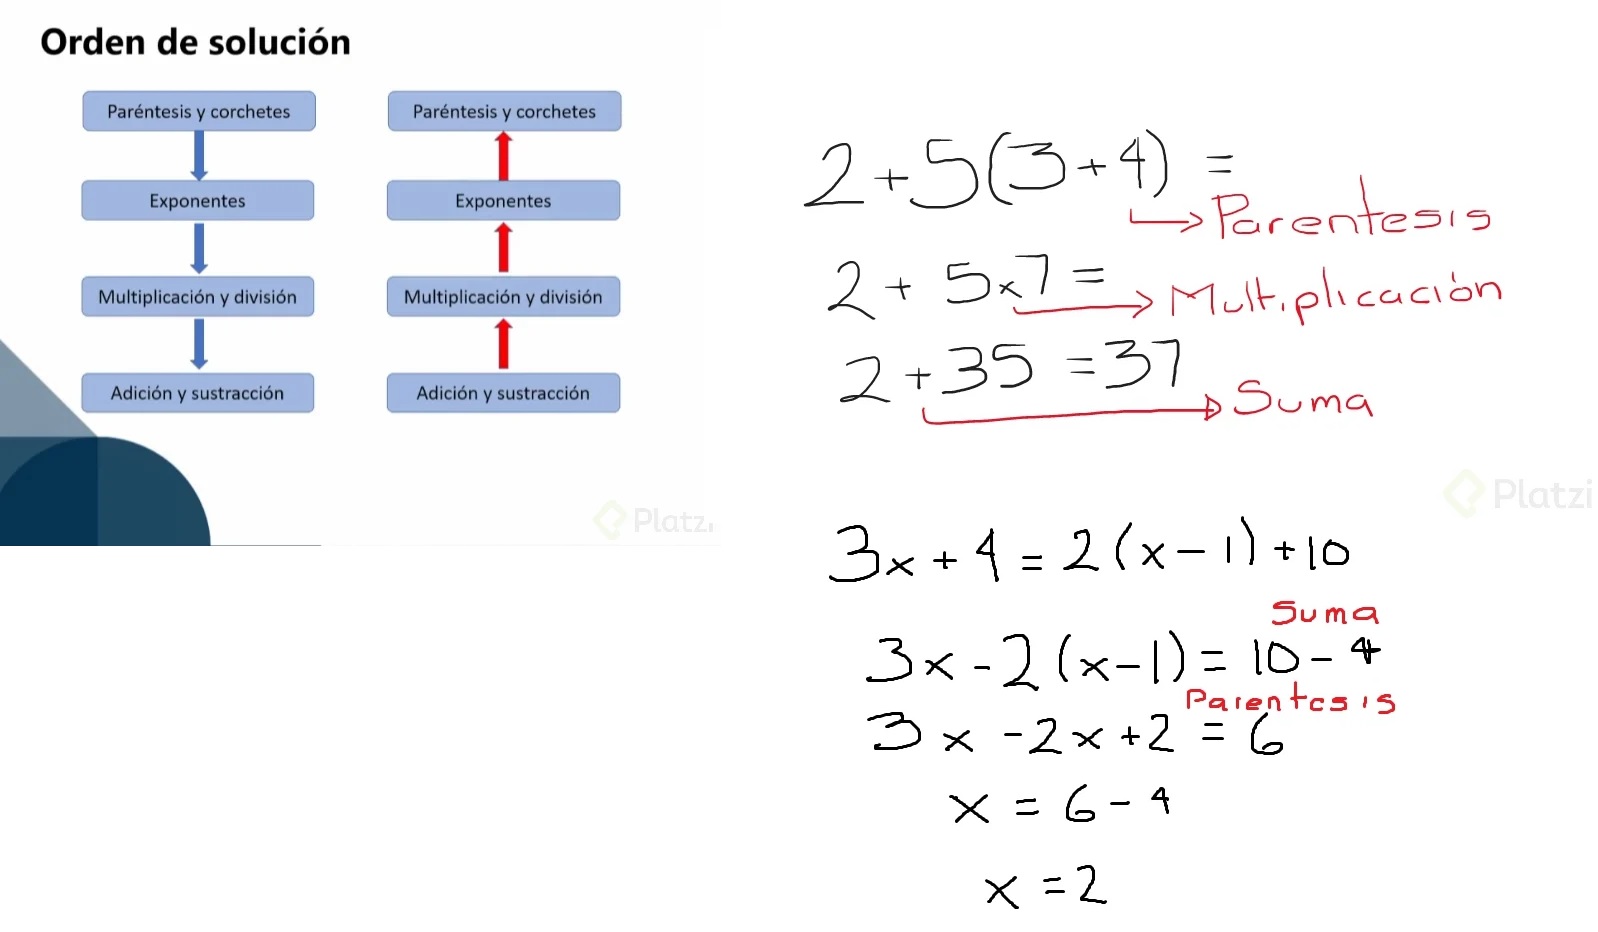 Orden de solución
Paréntesis y corchetes
Exponentes
Multiplicación y división
Adición y sustracción
Paréntesis y corchetes
Exponentes
Multiplicación y división
Adición y sustracción
Platzi
2+5(3+4) =
Parentesis
2 + 5x7 =
Multiplicación
2 + 35 = 37
Suma
Platzi
3x + 4 = 2(x - 1) + 10
Suma
3x - 2(x-1) = 10 - 4
Parentesis
3x - 2x + 2 = 6
x = 6 - 4
x = 2